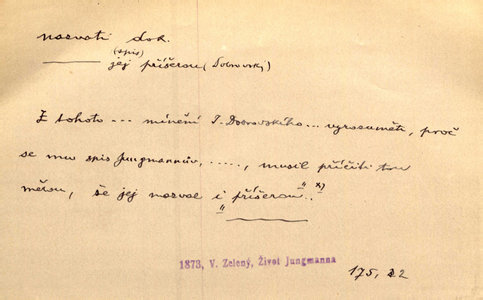 nazvati dok.
(spis)
jej příšerou (Dobrovský)
Z tohoto --- mínění J. Dobrovského ... vyrozuměti, proč
se mu spis Jungmannův, ....., musil příčiti tou
měrou, že jej nazval i „příšerou“. x)
1873, V. Zelený, Život Jungmanna
175, 22